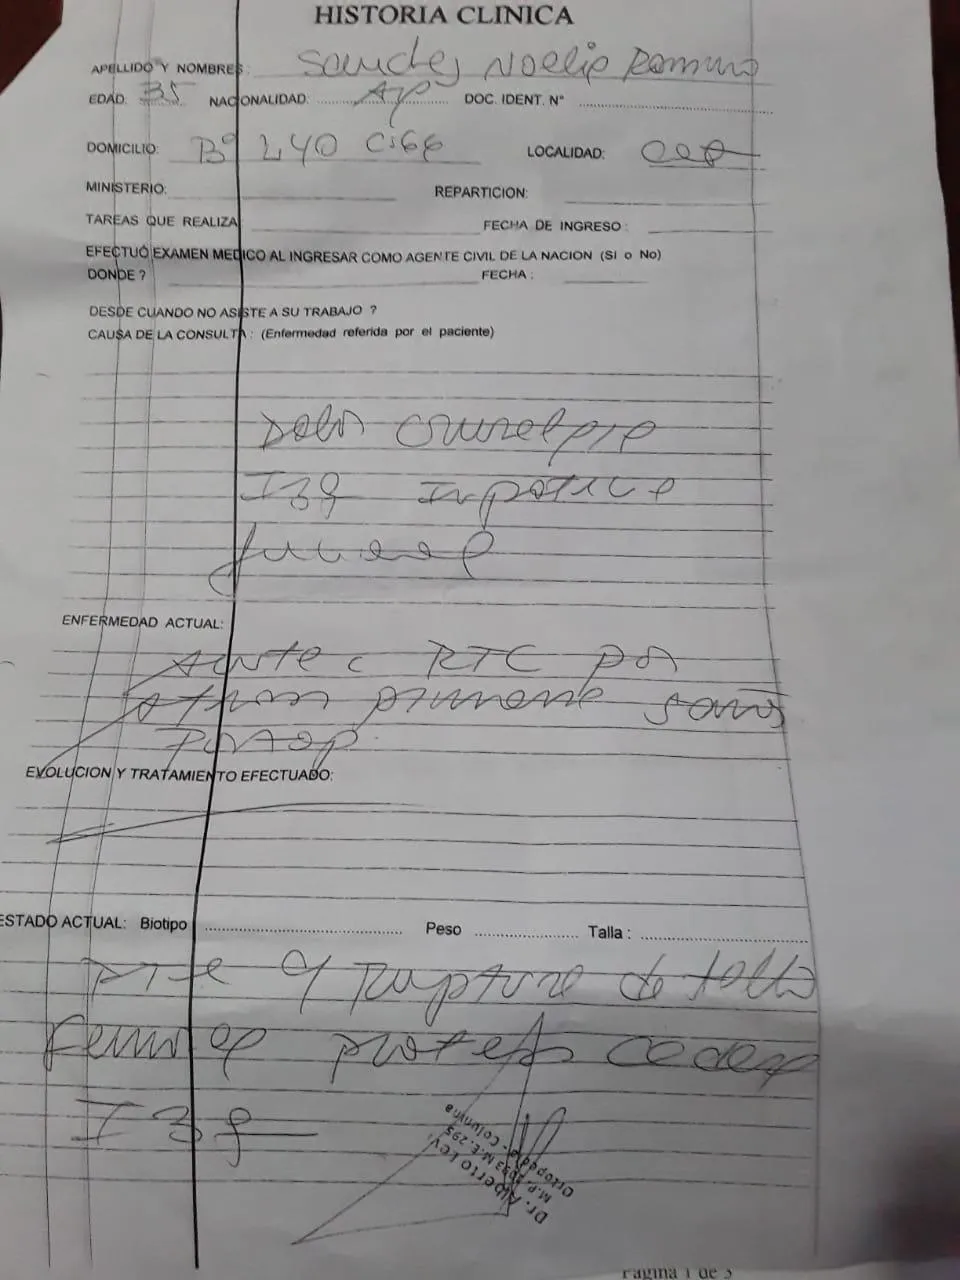 HISTORIA CLINICA
APELLIDO Y NOMBRES: Noelia Romina
EDAD: 35 NACIONALIDAD: DOC. IDENT. N°
DOMICILIO: B° 240 LOCALIDAD:
MINISTERIO: REPARTICION:
TAREAS QUE REALIZA FECHA DE INGRESO:
EFECTUÓ EXAMEN MEDICO AL INGRESAR COMO AGENTE CIVIL DE LA NACION (SI o No)
DONDE ? FECHA :
DESDE CUANDO NO ASISTE A SU TRABAJO ?
CAUSA DE LA CONSULTA: (Enfermedad referida por el paciente)
Dolor
Izq Impotencia
funcional
ENFERMEDAD ACTUAL:
RTC por
EVOLUCION Y TRATAMIENTO EFECTUADO:
ESTADO ACTUAL: Biotipo Peso Talla :
Pte c/ Ruptura de tallo
femoral protesis cadera
Izq
Dr. Alberto
M.E. 295
Ortopedia - Columna
Pagina 1 de 3